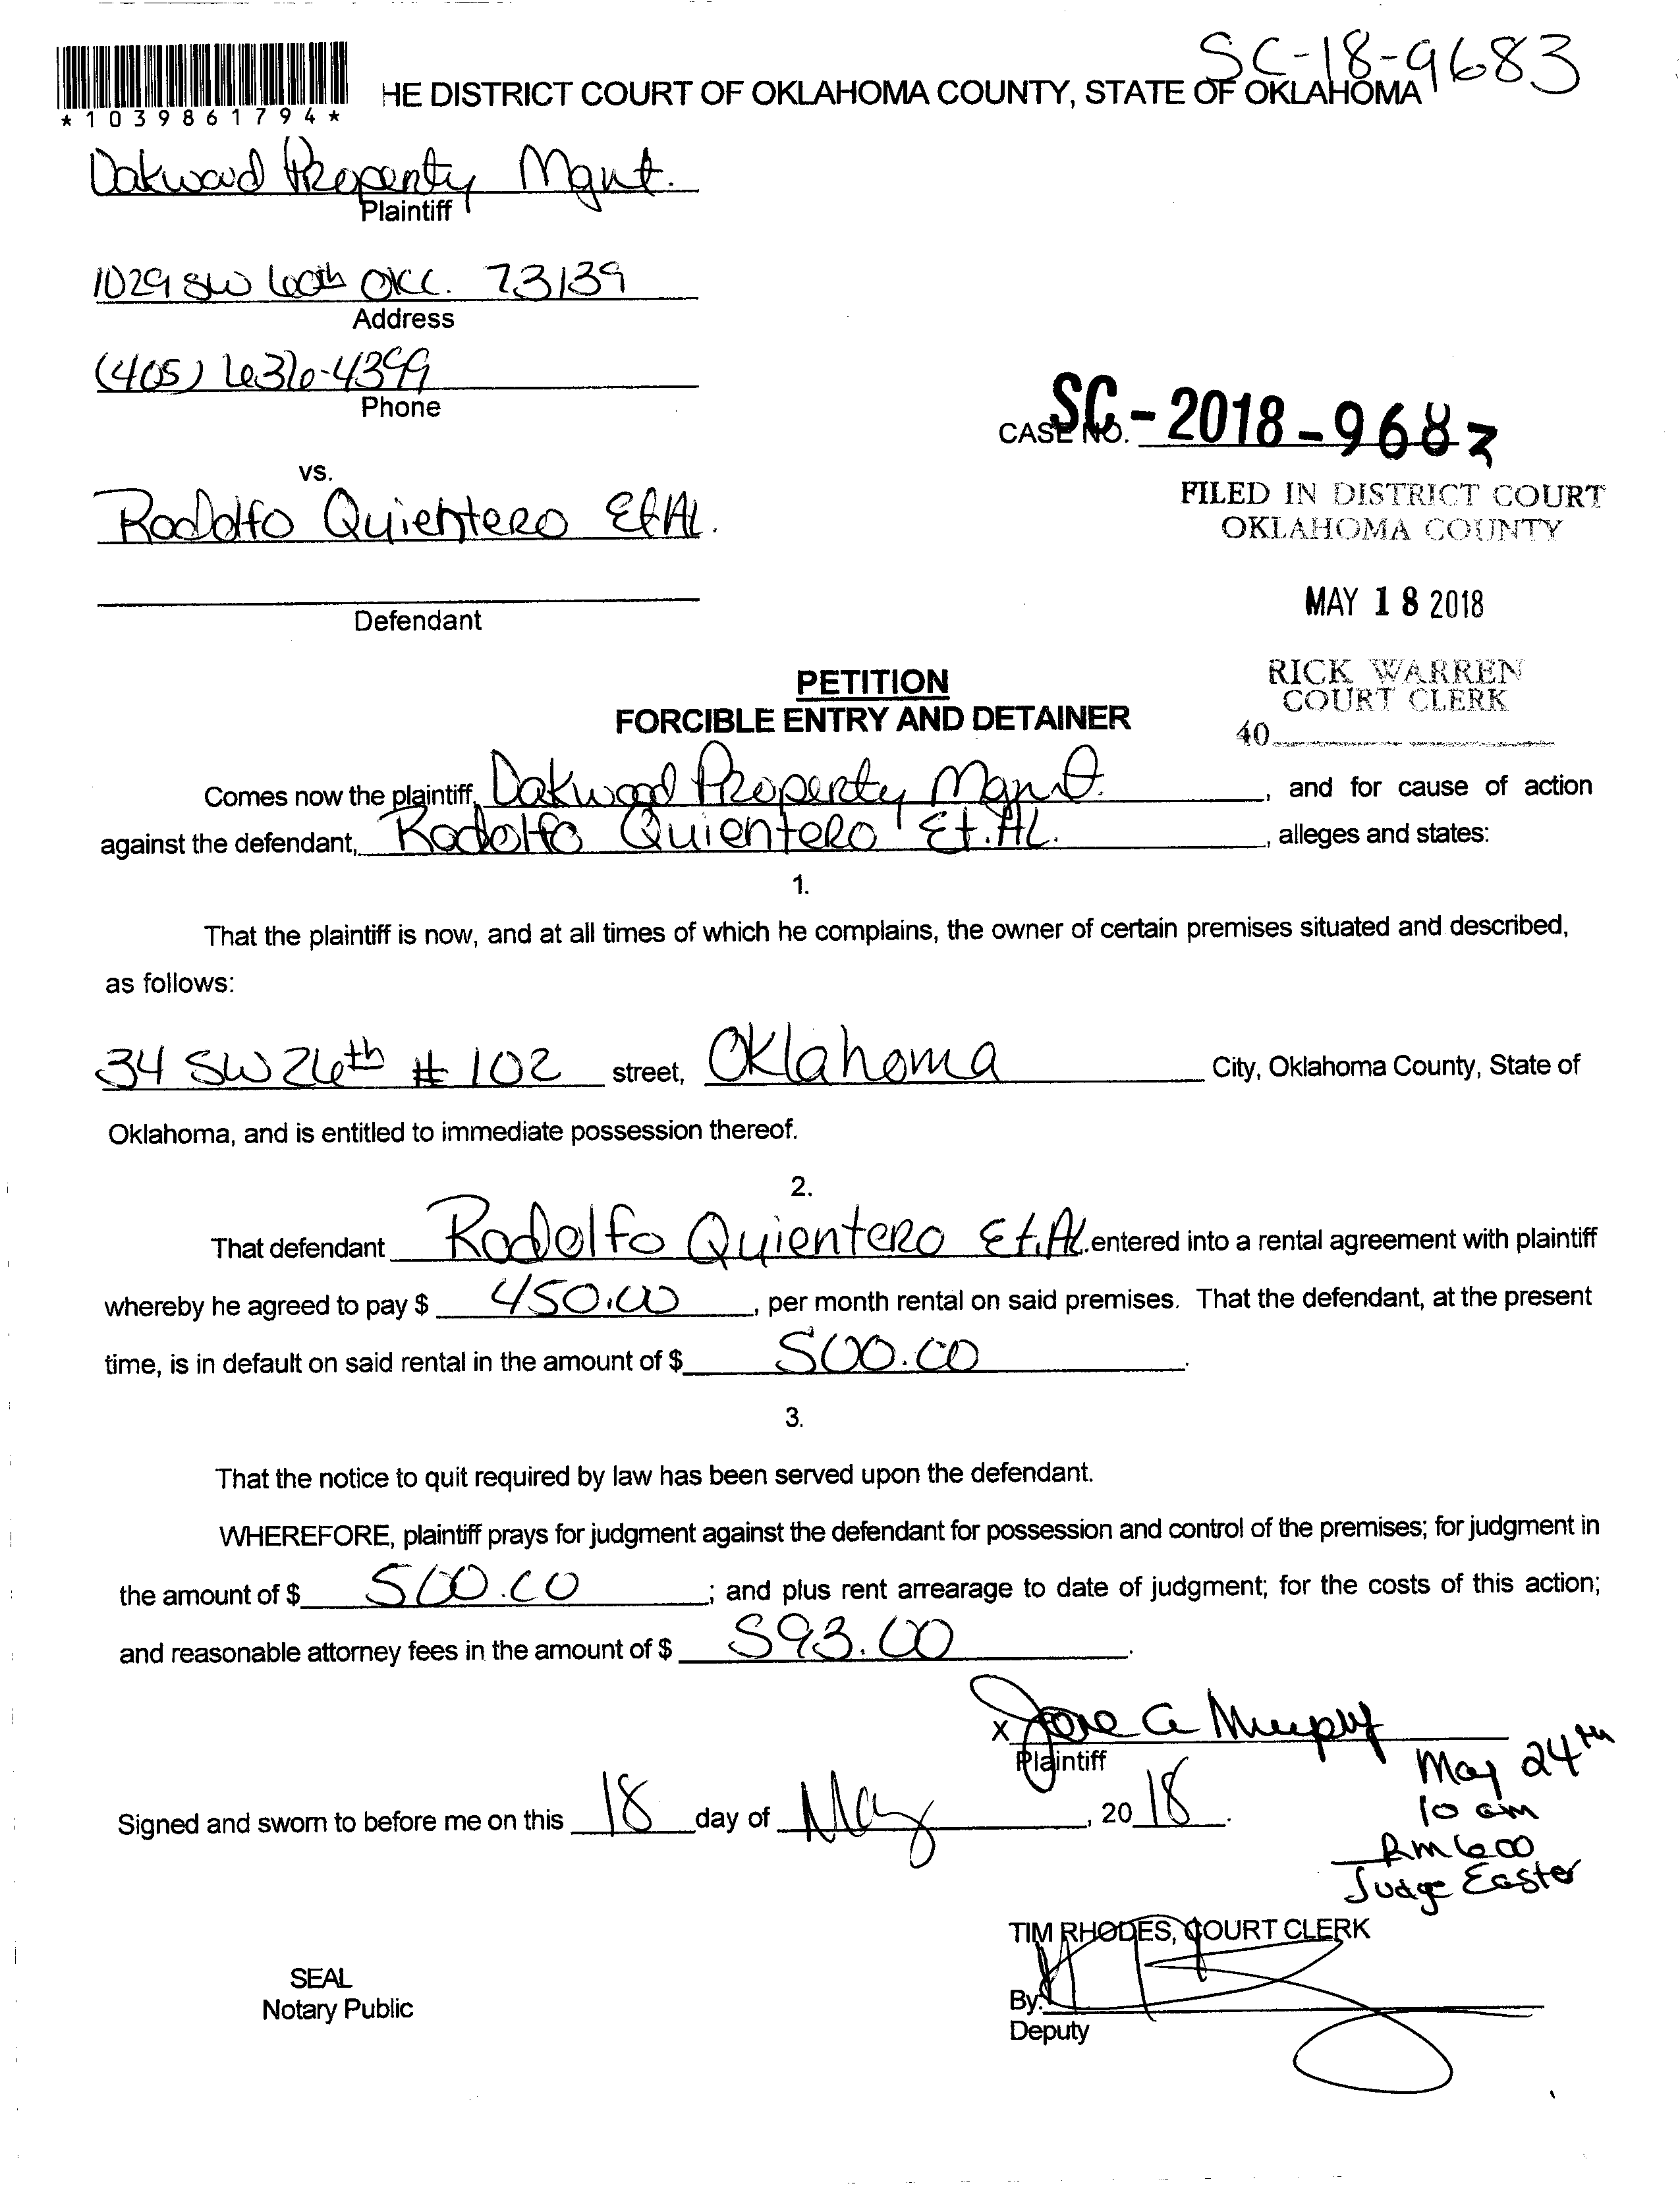 SC-18-9683
*1039861794*
HE DISTRICT COURT OF OKLAHOMA COUNTY, STATE OF OKLAHOMA
Oakwood Property Mgnt.
Plaintiff
1029 SW 60th OKC. 73139
Address
(405) 636-4399
Phone
CASE NO. SC-2018-9683
vs.
FILED IN DISTRICT COURT
OKLAHOMA COUNTY
Rodolfo Quientero Et Al.
MAY 18 2018
Defendant
RICK WARREN
COURT CLERK
40
PETITION
FORCIBLE ENTRY AND DETAINER
Comes now the plaintiff, Oakwood Property Mgnt. , and for cause of action
against the defendant, Rodolfo Quientero Et. Al. , alleges and states:
1.
That the plaintiff is now, and at all times of which he complains, the owner of certain premises situated and described,
as follows:
34 SW 26th # 102 street, Oklahoma City, Oklahoma County, State of
Oklahoma, and is entitled to immediate possession thereof.
2.
That defendant Rodolfo Quientero Et. Al. entered into a rental agreement with plaintiff
whereby he agreed to pay $ 450.00 , per month rental on said premises. That the defendant, at the present
time, is in default on said rental in the amount of $ 500.00 .
3.
That the notice to quit required by law has been served upon the defendant.
WHEREFORE, plaintiff prays for judgment against the defendant for possession and control of the premises; for judgment in
the amount of $ 500.00 ; and plus rent arrearage to date of judgment; for the costs of this action;
and reasonable attorney fees in the amount of $ 593.00 .
X Jone a Murphy
Plaintiff
May 24th
10 am
Rm 600
Judge Easter
Signed and sworn to before me on this 18 day of May , 20 18 .
TIM RHODES, COURT CLERK
SEAL
Notary Public
By:
Deputy